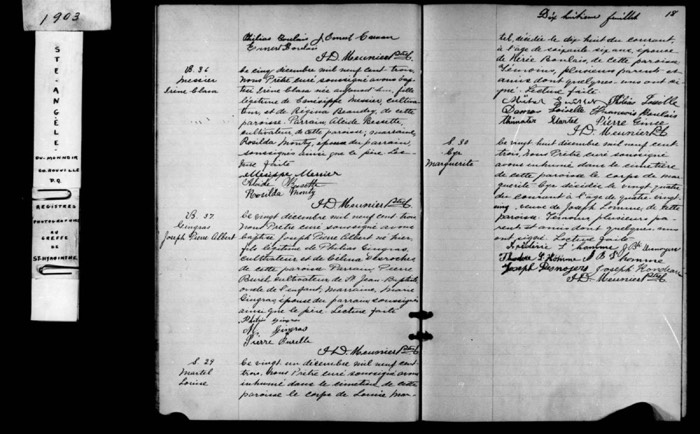 1903
STE-ANGÈLE
DU-MONNOIR
CO. ROUVILLE
P.Q.
REGISTRES
PHOTOGRAPHIÉS
AU
GREFFE
DE
ST-HYACINTHE
Ernest Boulais
J.D. Meunier Ptre
B. 36
Messier
Irène Clara
Ce cinq décembre mil neuf cent trois,
Nous Prêtre curé soussigné avons bap-
tisé Irène Clara née aujourd'hui, fille
légitime de Messier, cultiva-
teur, et de Régina Beaudry, de cette
paroisse. Parrain, Alcide Bessette,
cultivateur de cette paroisse; marraine,
Rosilda Monty, épouse du parrain,
soussignés ainsi que le père. Lec-
ture faite
Messier
Alcide Bessette
Rosilda Monty
J.D. Meunier Ptre
B. 37
Gingras
Joseph Pierre Albert
Ce vingt décembre mil neuf cent trois
Nous Prêtre curé soussigné avons
baptisé Joseph Pierre Albert né hier,
fils légitime de Philias Gingras,
cultivateur et de Célina Desroches
de cette paroisse. Parrain, Pierre
cultivateur de St Jean Baptiste
oncle de l'enfant; Marraine, Marie
Gingras, épouse du parrain, soussignés
ainsi que le père. Lecture faite
Philias Gingras
M. Gingras
Pierre
J.D. Meunier Ptre
S. 29
Martel
Louise
Ce vingt un décembre mil neuf cent
trois, Nous Prêtre curé soussigné avons
inhumé dans le cimetière de cette
paroisse le corps de Louise Mar-
Dix huitième feuillet
18
tel, décédée le dix huit du courant,
à l'âge de soixante six ans, épouse
de Boulais, de cette paroisse
Témoins, plusieurs parents et
amis dont quelques-uns ont si-
gné. Lecture faite
Pierre Gingras
J.D. Meunier Ptre
S. 30
Cyr
Marguerite
Ce vingt huit décembre mil neuf cent
trois, Nous Prêtre curé soussigné
avons inhumé dans le cimetière
de cette paroisse le corps de Mar-
guerite Cyr décédée le vingt quatre
du courant à l'âge de quatre vingt
veuve de Joseph Lomme, de cette
paroisse. Témoins, plusieurs pa-
rents et amis dont quelques-uns
ont signé. Lecture faite
Joseph Desnoyers Joseph Rondeau
J.D. Meunier Ptre